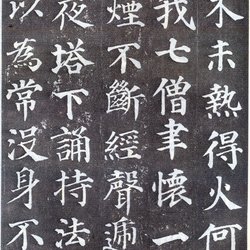 木未熟得火何
我七僧聿懷一
煙不斷經聲遞
夜塔下誦持法
以為常没身不